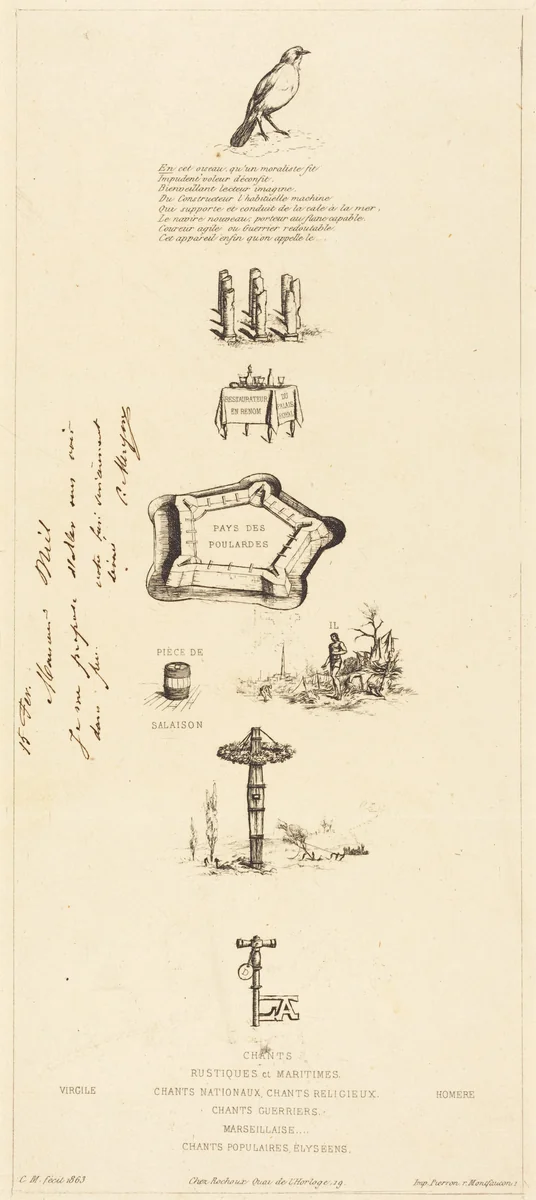 En cet oiseau, qu'un moraliste fit
Impudent voleur déconfit.
Bienveillant lecteur imagine.
Du Constructeur l'habituelle machine
Qui supporte et conduit de la cale à la mer,
Le navire nouveau; porteur au flanc capable.
Coureur agile ou Guerrier redoutable.
Cet appareil enfin qu'on appelle le...
RESTAURATEUR
EN RENOM
DU
PALAIS
ROYAL
PAYS DES
POULARDES
IL
PIÈCE DE
SALAISON
D
LA
15 Fev.
Monsieur Niel
Je me propose d'aller vous voir
dans
votre bien
dévoué
C. Meryon
CHANTS
RUSTIQUES et MARITIMES.
VIRGILE
CHANTS NATIONAUX, CHANTS RELIGIEUX.
HOMERE
CHANTS GUERRIERS.
MARSEILLAISE....
CHANTS POPULAIRES, ÉLYSEENS.
C. M. fecit 1863
Chez Rochoux Quai de l'Horloge. 19.
Imp. Pierron. r. Montfaucon. 1